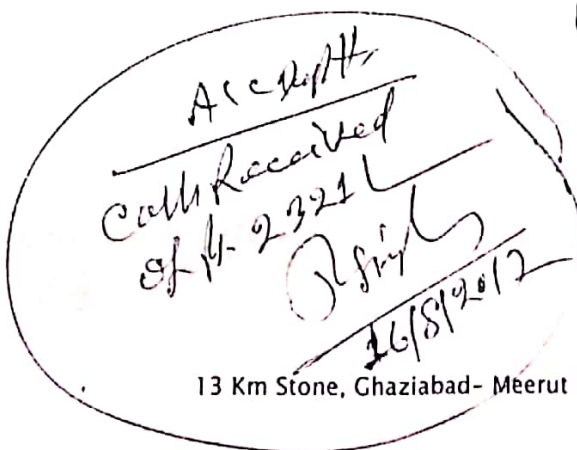 Acc Deptt,
Cash Received
of ₨ 2321/-
R Singh
16/8/2012
13 Km Stone, Ghaziabad- Meerut